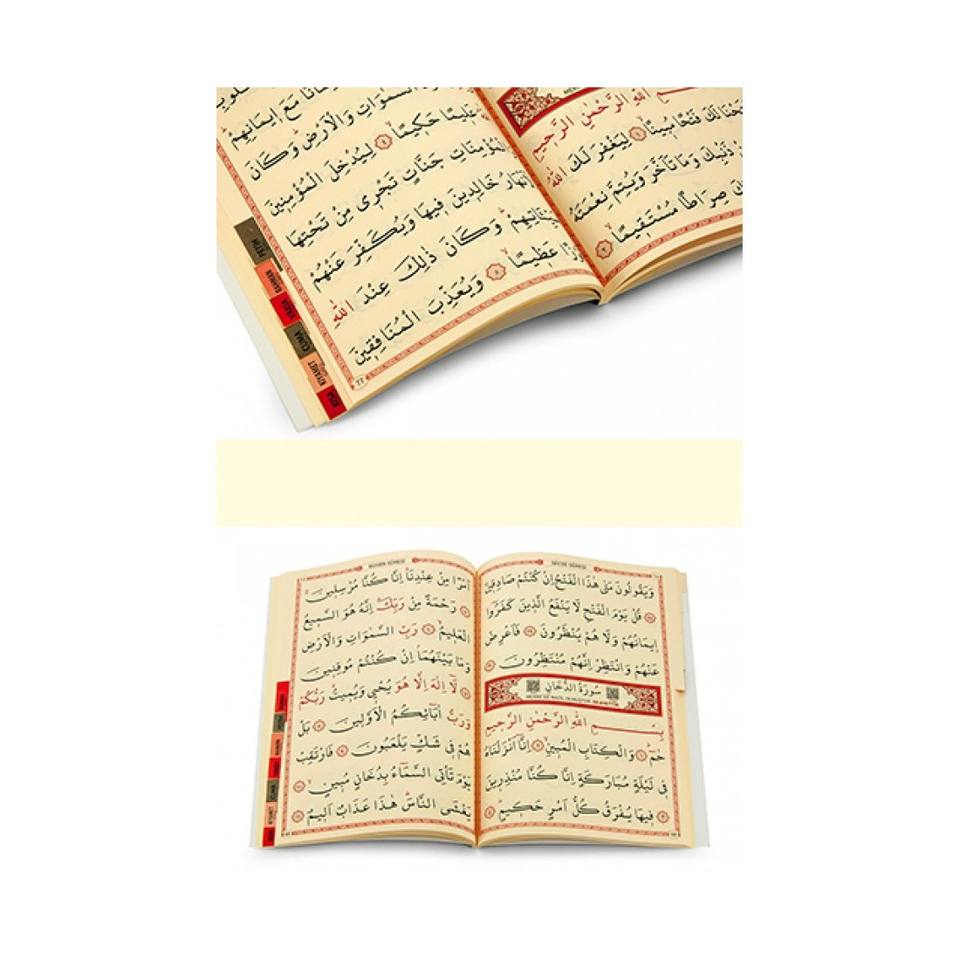 الرَّحْمٰنِ الرَّحِيمِ
لَكَ فَتْحًا مُبِينًا ۝ لِيَغْفِرَ لَكَ اللهُ
ذَنْبِكَ وَمَا تَأَخَّرَ وَيُتِمَّ نِعْمَتَهُ
صِرَاطًا مُسْتَقِيمًا ۝
مَعَ اِيمَانِهِمْ
السَّمٰوَاتِ وَالْاَرْضِ وَكَانَ
عَلِيمًا حَكِيمًا ۝ لِيُدْخِلَ الْمُؤْمِنِينَ
جَنَّاتٍ تَجْرِى مِنْ تَحْتِهَا
خَالِدِينَ فِيهَا وَيُكَفِّرَ عَنْهُمْ
وَكَانَ ذٰلِكَ عِنْدَ اللهِ
عَظِيمًا ۝ وَيُعَذِّبَ الْمُنَافِقِينَ
77
FETİH
RAHMAN
VAKIA
CUMA
KIYAMET
KISA
SECDE SÛRESİ
وَيَقُولُونَ مَتٰى هٰذَا الْفَتْحُ اِنْ كُنْتُمْ صَادِقِينَ
۝ قُلْ يَوْمَ الْفَتْحِ لَا يَنْفَعُ الَّذِينَ كَفَرُوا
اِيمَانُهُمْ وَلَا هُمْ يُنْظَرُونَ ۝ فَاَعْرِضْ
عَنْهُمْ وَانْتَظِرْ اِنَّهُمْ مُنْتَظِرُونَ ۝
سُورَةُ الدُّخَانِ
بِسْمِ اللهِ الرَّحْمٰنِ الرَّحِيمِ
حٰمٓ ۝ وَالْكِتَابِ الْمُبِينِ ۝ اِنَّا اَنْزَلْنَاهُ
فِى لَيْلَةٍ مُبَارَكَةٍ اِنَّا كُنَّا مُنْذِرِينَ
۝ فِيهَا يُفْرَقُ كُلُّ اَمْرٍ حَكِيمٍ ۝
DUHÂN SÛRESİ
اَمْرًا مِنْ عِنْدِنَا اِنَّا كُنَّا مُرْسِلِينَ
۝ رَحْمَةً مِنْ رَبِّكَ اِنَّهُ هُوَ السَّمِيعُ
الْعَلِيمُ ۝ رَبِّ السَّمٰوَاتِ وَالْاَرْضِ
وَمَا بَيْنَهُمَا اِنْ كُنْتُمْ مُوقِنِينَ
۝ لَا اِلٰهَ اِلَّا هُوَ يُحْيِى وَيُمِيتُ رَبُّكُمْ
وَرَبُّ اٰبَائِكُمُ الْاَوَّلِينَ ۝ بَلْ
هُمْ فِى شَكٍّ يَلْعَبُونَ ۝ فَارْتَقِبْ
يَوْمَ تَأْتِى السَّمَاءُ بِدُخَانٍ مُبِينٍ ۝
يَغْشَى النَّاسَ هٰذَا عَذَابٌ اَلِيمٌ ۝